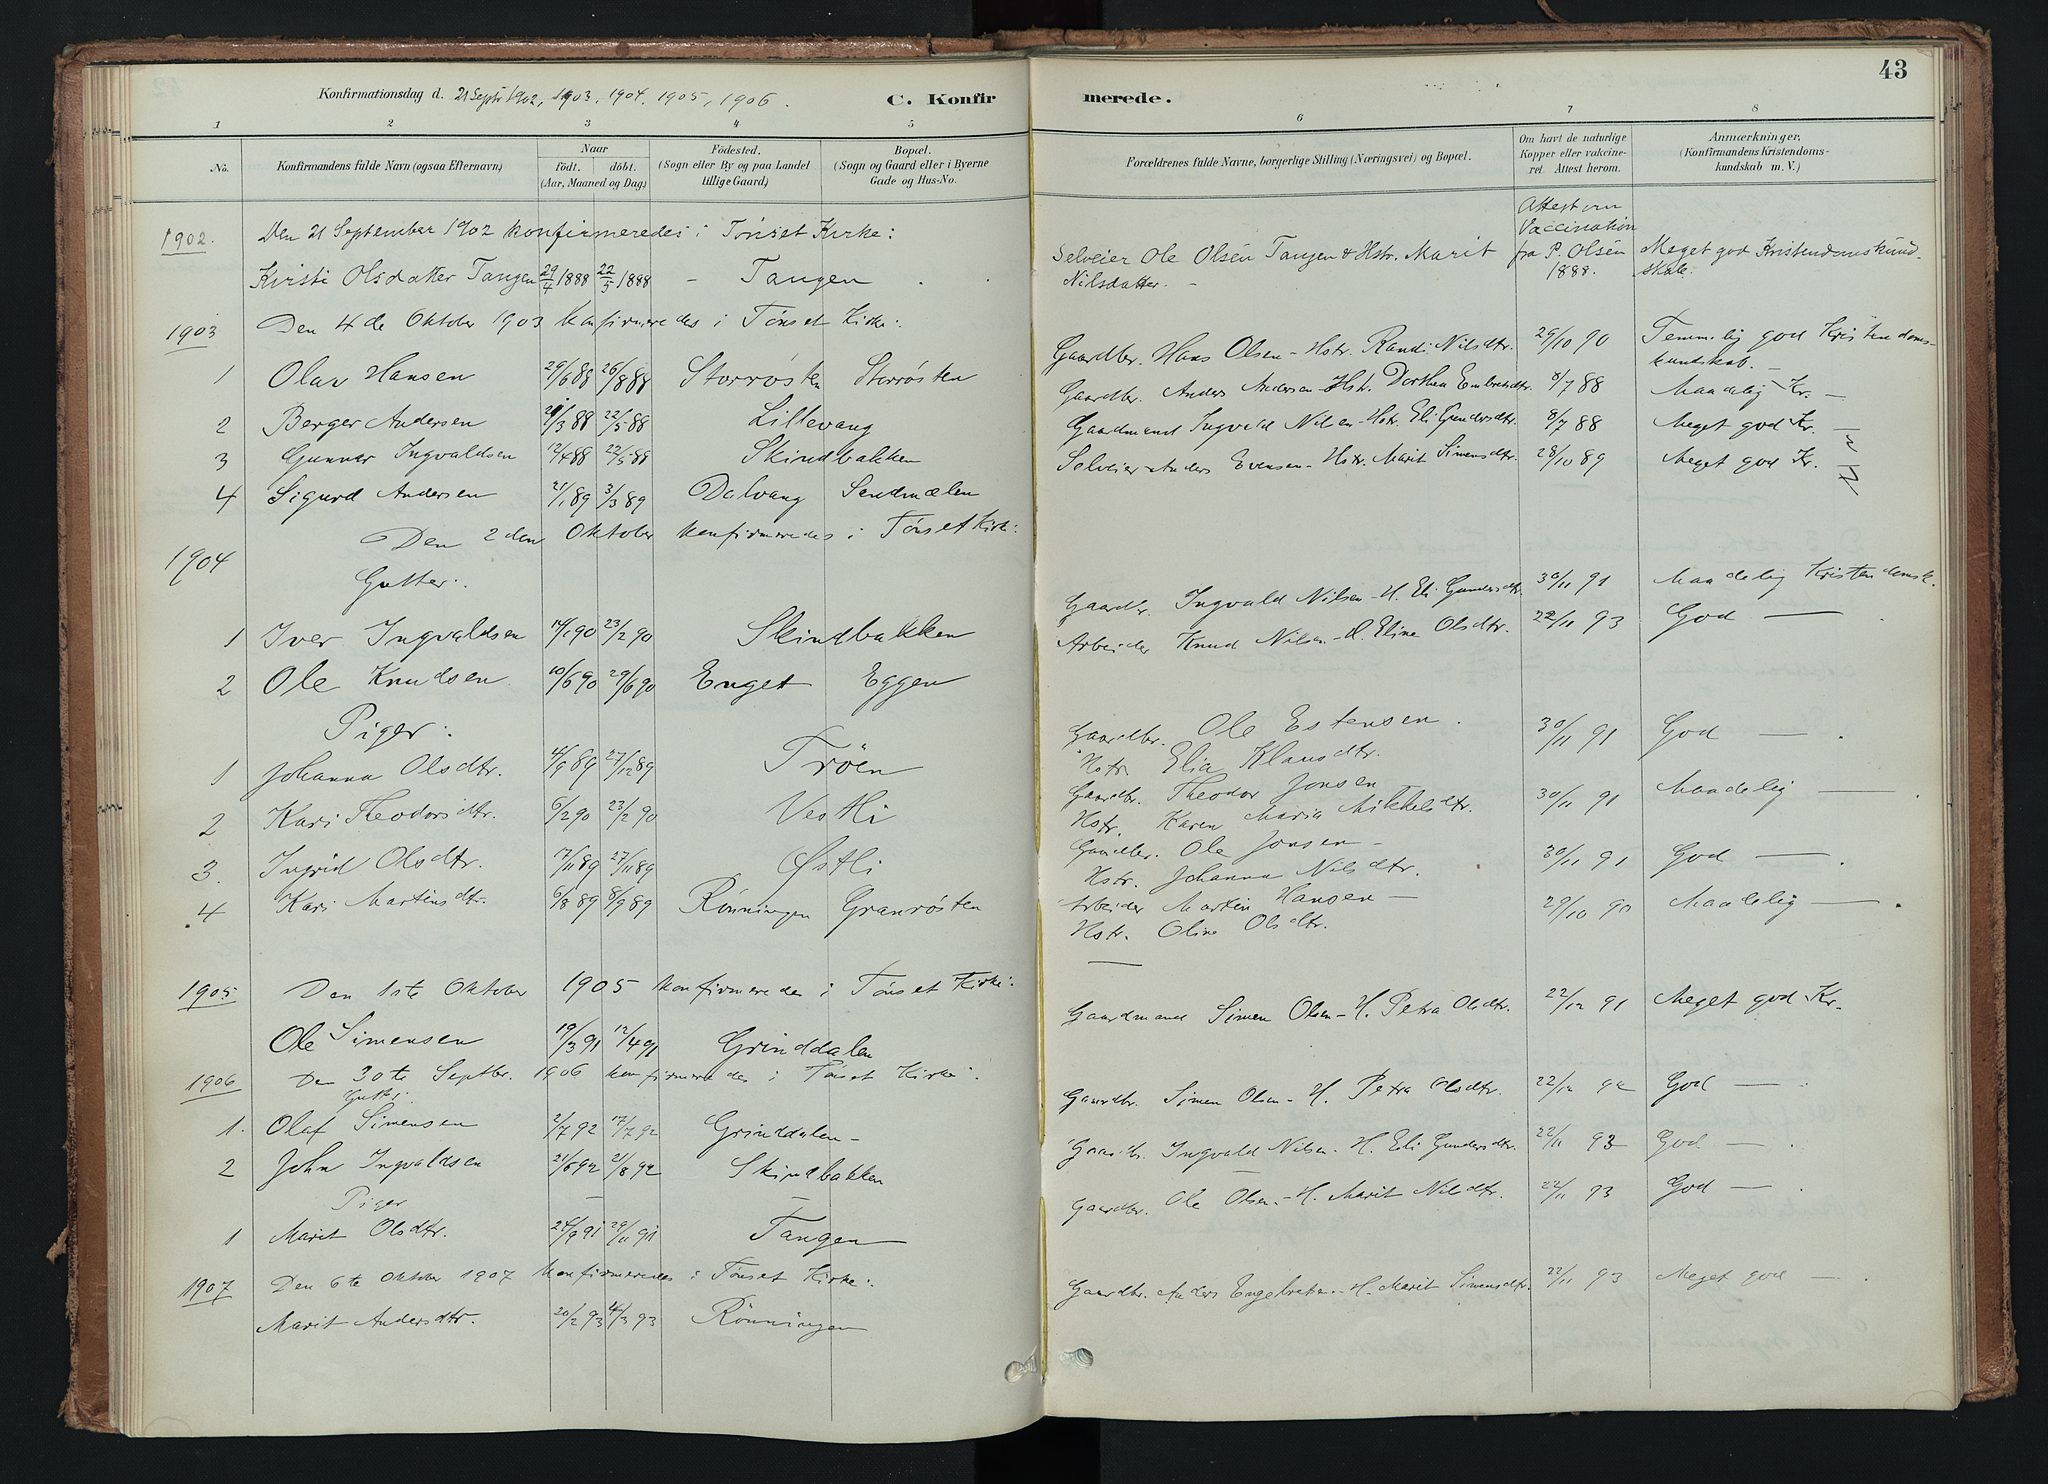 43
Konfirmationsdag d. 21 Septr 1902, 1903, 1904, 1905, 1906.
C. Konfir merede.
1 2 3 4 5 6 7 8
No.
Konfirmandens fulde Navn (ogsaa Efternavn)
Naar
födt. döbt.
(Aar, Maaned og Dag)
Födested.
(Sogn eller By og paa Landet
tillige Gaard)
Bopæl.
(Sogn og Gaard eller i Byerne
Gade og Hus-No.
Forældrenes fulde Navne, borgerlige Stilling (Næringsvei) og Bopæl.
Om havt de naturlige
Kopper eller vakcine-
ret. Attest herom.
Anmærkninger,
(Konfirmandens Kristendoms-
kundskab m. V.)
1902. Den 21 September 1902 konfirmeredes i Tönset Kirke:
Kirsti Olsdatter Tangen 29/4 1888 22/5 1888 - Tangen Selveier Ole Olsen Tangen & Hstr. Marit
Nilsdatter. -
Attest om
Vaccination
fra P. Olsen
1888.
Meget god Kristendomskund-
skab.
1903 Den 4 de Oktober 1903 konfirmeredes i Tönset Kirke:
1 Olav Hansen 29/6 88 26/8 88 Storrøsten Storrøsten Gaardbr. Hans Olsen - Hstr. Randi Nilsdtr. 29/10 90 Temmelig god Kristendoms-
kundskab. -
2 Berger Andersen 21/3 88 22/5 88 Lillevang Gaardbr. Anders Andersen - Hstr. Dorthea Embretsdtr. 8/7 88 Maadelig Kr. -
3 Gunnar Ingvaldsen 12/4 88 22/5 88 Skindbakken Gaardmand Ingvald Nilsen - Hstr. Eli Gundersdtr. 8/7 88 Meget god Kr. -
4 Sigurd Andersen 21/1 89 3/3 89 Dalvang Sendmælen Selveier Anders Evensen - Hstr. Marit Simensdtr. 28/10 89 Meget god Kr.
1904 Den 2 den Oktober konfirmeredes i Tönset Kirke:
Gutter:
1 Iver Ingvaldsen 14/1 90 23/2 90 Skindbakken Gaardbr. Ingvald Nilsen - H. Eli Gundersdtr. 30/11 91 Maadelig Kristendomsk.
2 Ole Knudsen 10/6 90 29/6 90 Enget Eggen Arbeider Knud Nilsen - H. Eline Olsdtr. 22/11 93 God -
Piger:
1 Johanna Olsdtr. 4/9 89 27/12 89 Trøen Gaardbr. Ole Estensen. 30/11 91 God - .
Hstr. Elia Klausdtr.
2 Kari Theodorsdtr. 6/2 90 23/2 90 Vestli Gaardbr. Theodor Jonsen 30/11 91 Maadelig -
Hstr. Karen Maria Mikkelsdtr.
3. Ingrid Olsdtr. 17/11 89 27/11 89 Østli Gaardbr. Ole Jonsen - 30/11 91 God - .
Hstr. Johanna Nilsdtr.
4 Kari Martinsdtr. 6/8 89 8/9 89 Rønningen Granrøsten Arbeider Martin Hansen - 29/10 90 Maadelig - .
Hstr. Oline Olsdtr.
1905 Den 1ste Oktober 1905 konfirmeredes i Tönset Kirke:
Ole Simensen 19/3 91 12/4 91 Grinddalen Gaardmand Simen Olsen - H. Petra Olsdtr. 22/12 91 Meget god Kr.
1906 Den 30te Septbr. 1906 konfirmeredes i Tönset Kirke:
Gutter:
1. Olaf Simensen 2/7 92 17/7 92 Grinddalen - Gaardbr. Simen Olsen - H. Petra Olsdtr. 22/12 92 God -
2 John Ingvaldsen 21/6 92 21/8 92 Skindbakken Gaardbr. Ingvald Nilsen - H. Eli Gundersdtr. 22/11 93 God - .
Piger
1 Marit Olsdtr. 24/9 91 29/11 91 Tangen Gaardbr. Ole Olsen - H. Marit Nilsdtr. 22/11 93 God - .
1907 Den 6te Oktober 1907 konfirmeredes i Tönset Kirke:
Marit Andersdtr. 20/2 93 4/3 93 Rønningen Gaardbr. Anders Engebretsen - H. Marit Simensdtr. 22/11 93 Meget god -